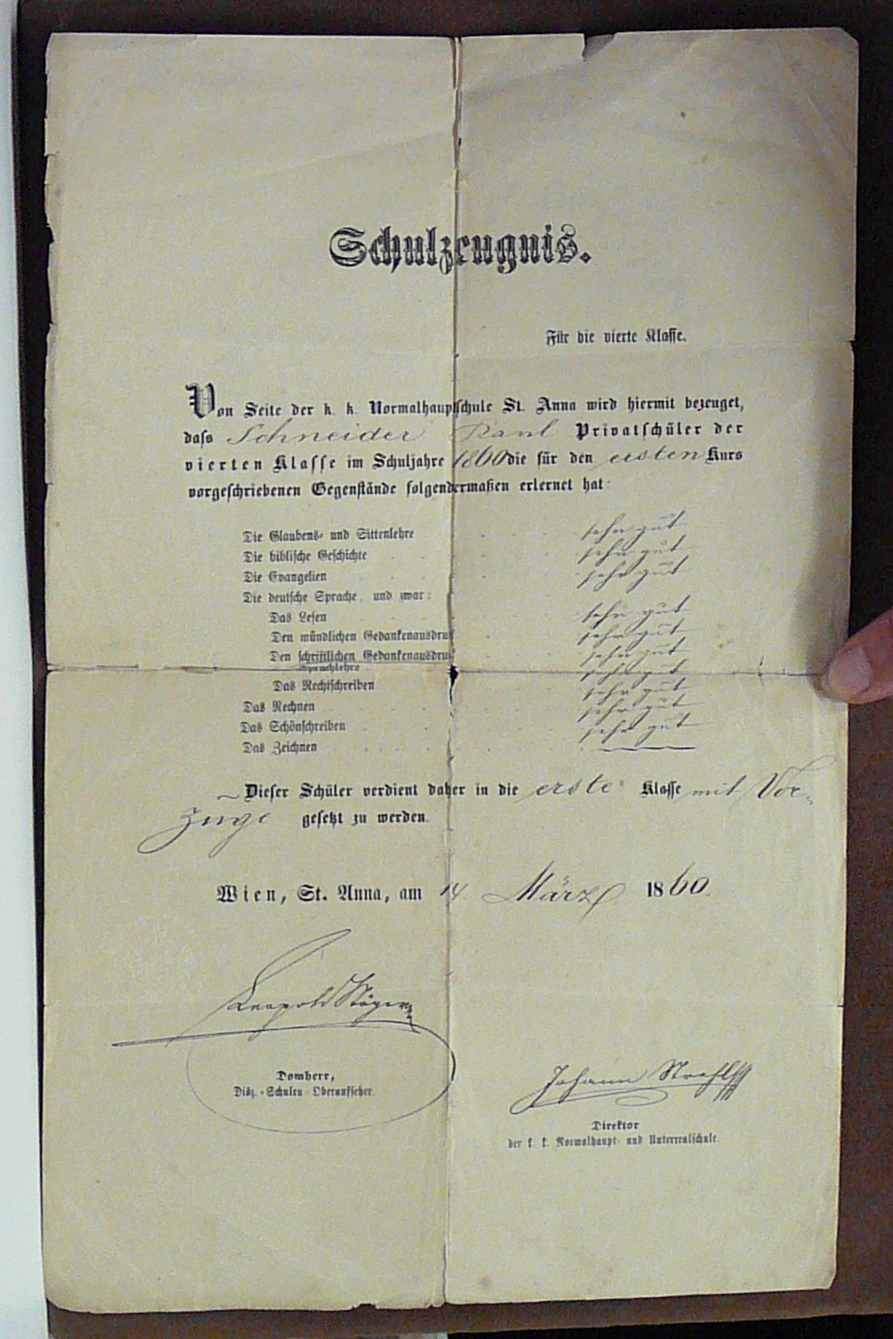 Schulzeugnis.
Für die vierte Klasse.
Von Seite der k. k. Normalhauptschule St. Anna wird hiermit bezeuget,
dass Schneider Paul Privatschüler der
vierten Klasse im Schuljahre 1860 die für den ersten Kurs
vorgeschriebenen Gegenstände folgendermaßen erlernet hat:
Die Glaubens- und Sittenlehre sehr gut
Die biblische Geschichte sehr gut
Die Evangelien sehr gut
Die deutsche Sprache, und zwar:
Das Lesen sehr gut
Den mündlichen Gedankenausdruck sehr gut
Den schriftlichen Gedankenausdruck sehr gut
Sprachlehre sehr gut
Das Rechtschreiben sehr gut
Das Rechnen sehr gut
Das Schönschreiben sehr gut
Das Zeichnen
Dieser Schüler verdient daher in die erste Klasse mit Vor-
zuge gesetzt zu werden.
Wien, St. Anna, am 14. März 1860.
Leopold
Domherr,
Diöz.-Schulen-Oberaufseher.
Johann
Direktor
der k. k. Normalhaupt- und Unterrealschule.